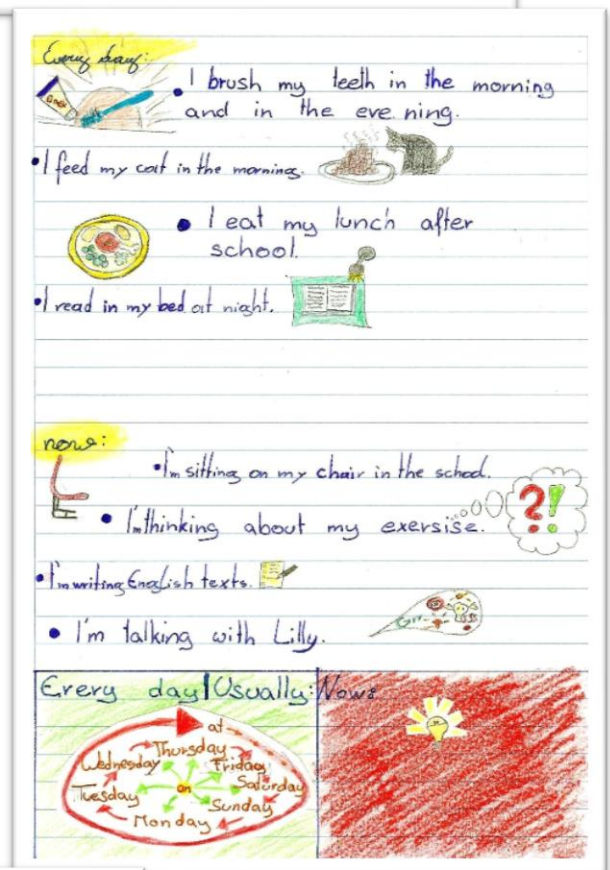 Every day:
• I brush my teeth in the morning
and in the eve ning.
• I feed my cat in the morning.
• I eat my lunch after
school.
• I read in my bed at night.
now:
• I'm sitting on my chair in the school.
• I'm thinking about my exersise.
?!
• I'm writing English texts.
• I'm talking with Lilly.
Every day/Usually: Now:
at
Thursday
Wednesday Friday
Saturday
Tuesday on
Sunday
Monday